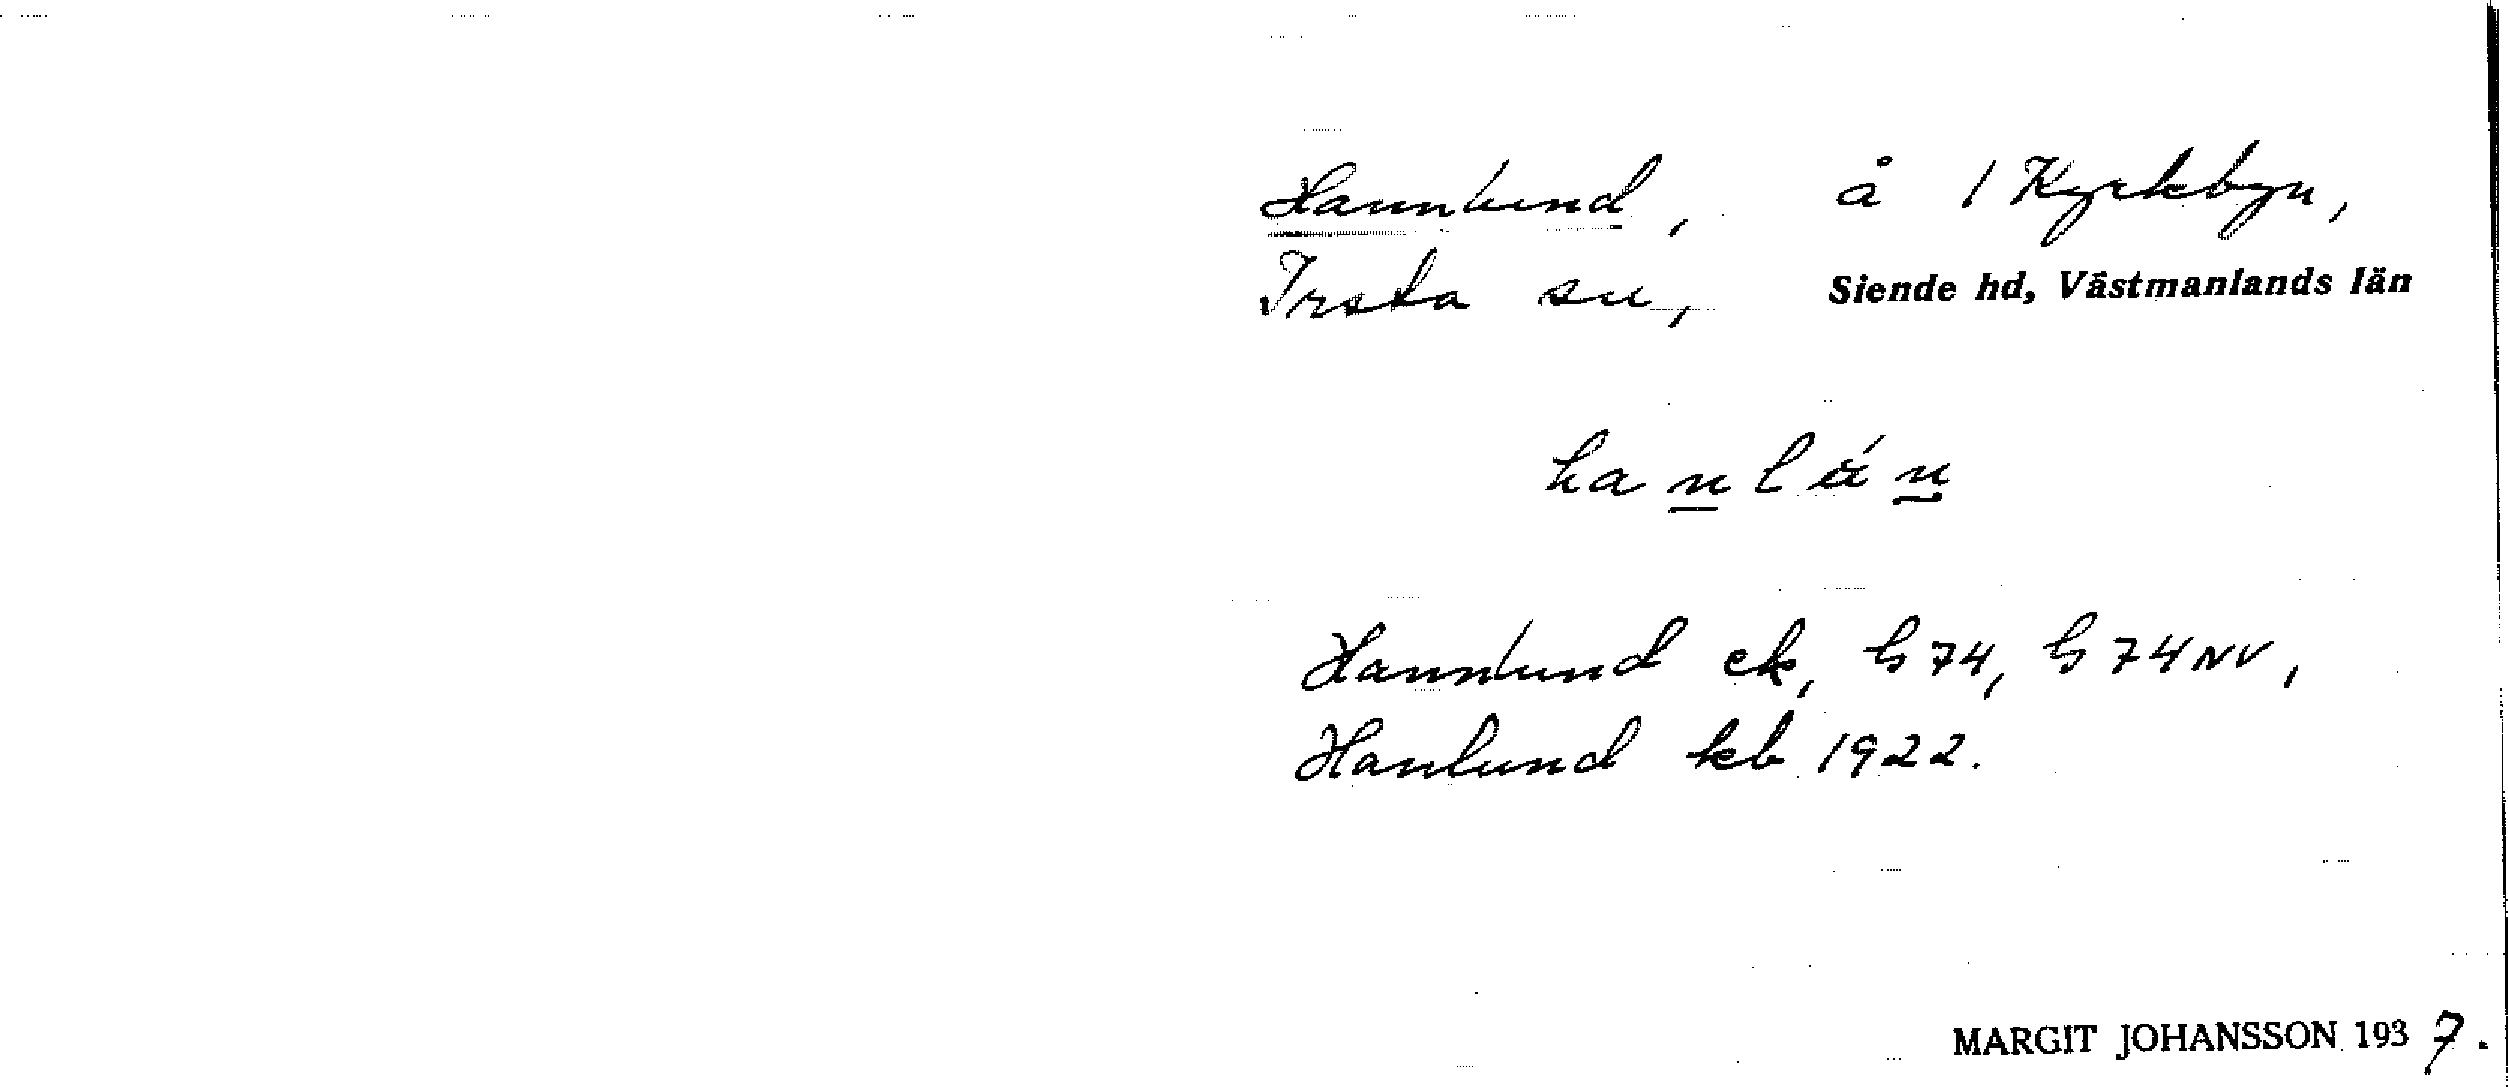 Hannlund, å 1 Kyrkbyn,
Irsta sn, Siende hd, Västmanlands län
hanlán
Hannlund ek, h 74, h 74 NV,
Hanlund kb 1922.
MARGIT JOHANSSON 1937.